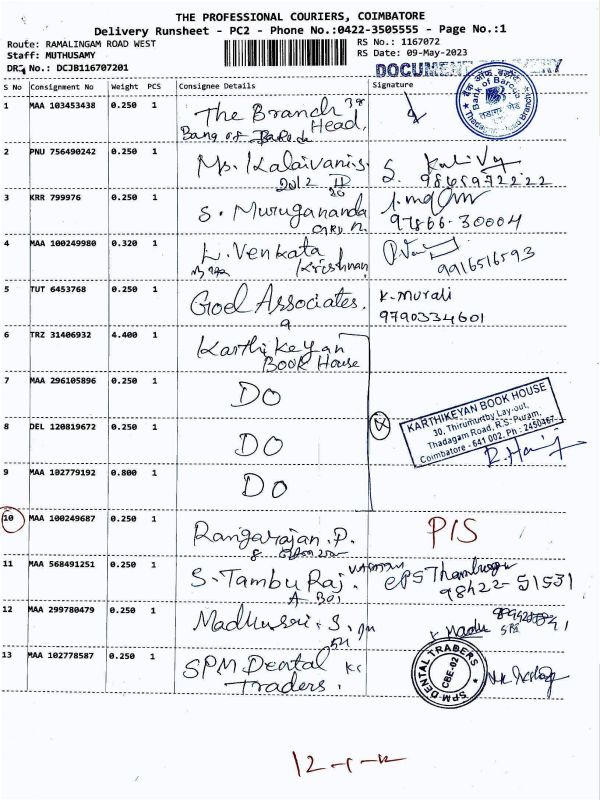 THE PROFESSIONAL COURIERS, COIMBATORE
Delivery Runsheet - PC2 - Phone No.:0422-3505555 - Page No.:1
Route: RAMALINGAM ROAD WEST
RS No.: 1167072
Staff: MUTHUSAMY
RS Date: 09-May-2023
DRS No.: DCJB116707201
DOCUMENT DELIVERY
S No Consignment No Weight PCS Consignee Details Signature
1 MAA 103453438 0.250 1 The Branch
Head,
Bank of Baroda
2 PNU 756490242 0.250 1 Ms. Kalaivani.S.
9865972222
3 KRR 799976 0.250 1 S. Murugananda
97866-30004
4 MAA 100249980 0.320 1 L. Venkata
Krishnan
9916516593
5 TUT 6453768 0.250 1 Goel Associates. K. Murali
9790334601
6 TRZ 31406932 4.400 1 Karthikeyan
Book House
7 MAA 296105896 0.250 1 DO
8 DEL 120819672 0.250 1 DO
KARTHIKEYAN BOOK HOUSE
30, Thirumurthy Lay-out,
Thadagam Road, R.S. Puram,
Coimbatore - 641 002. Ph : 2450467
9 MAA 102779192 0.800 1 DO
10 MAA 100249687 0.250 1 Rangarajan.P. PIS
11 MAA 568491251 0.250 1 S. Tambu Raj.
98422-51531
12 MAA 299780479 0.250 1 Madhusri.S.
13 MAA 102778587 0.250 1 SPM Dental
Traders.
SPM DENTAL TRADERS
CBE-02